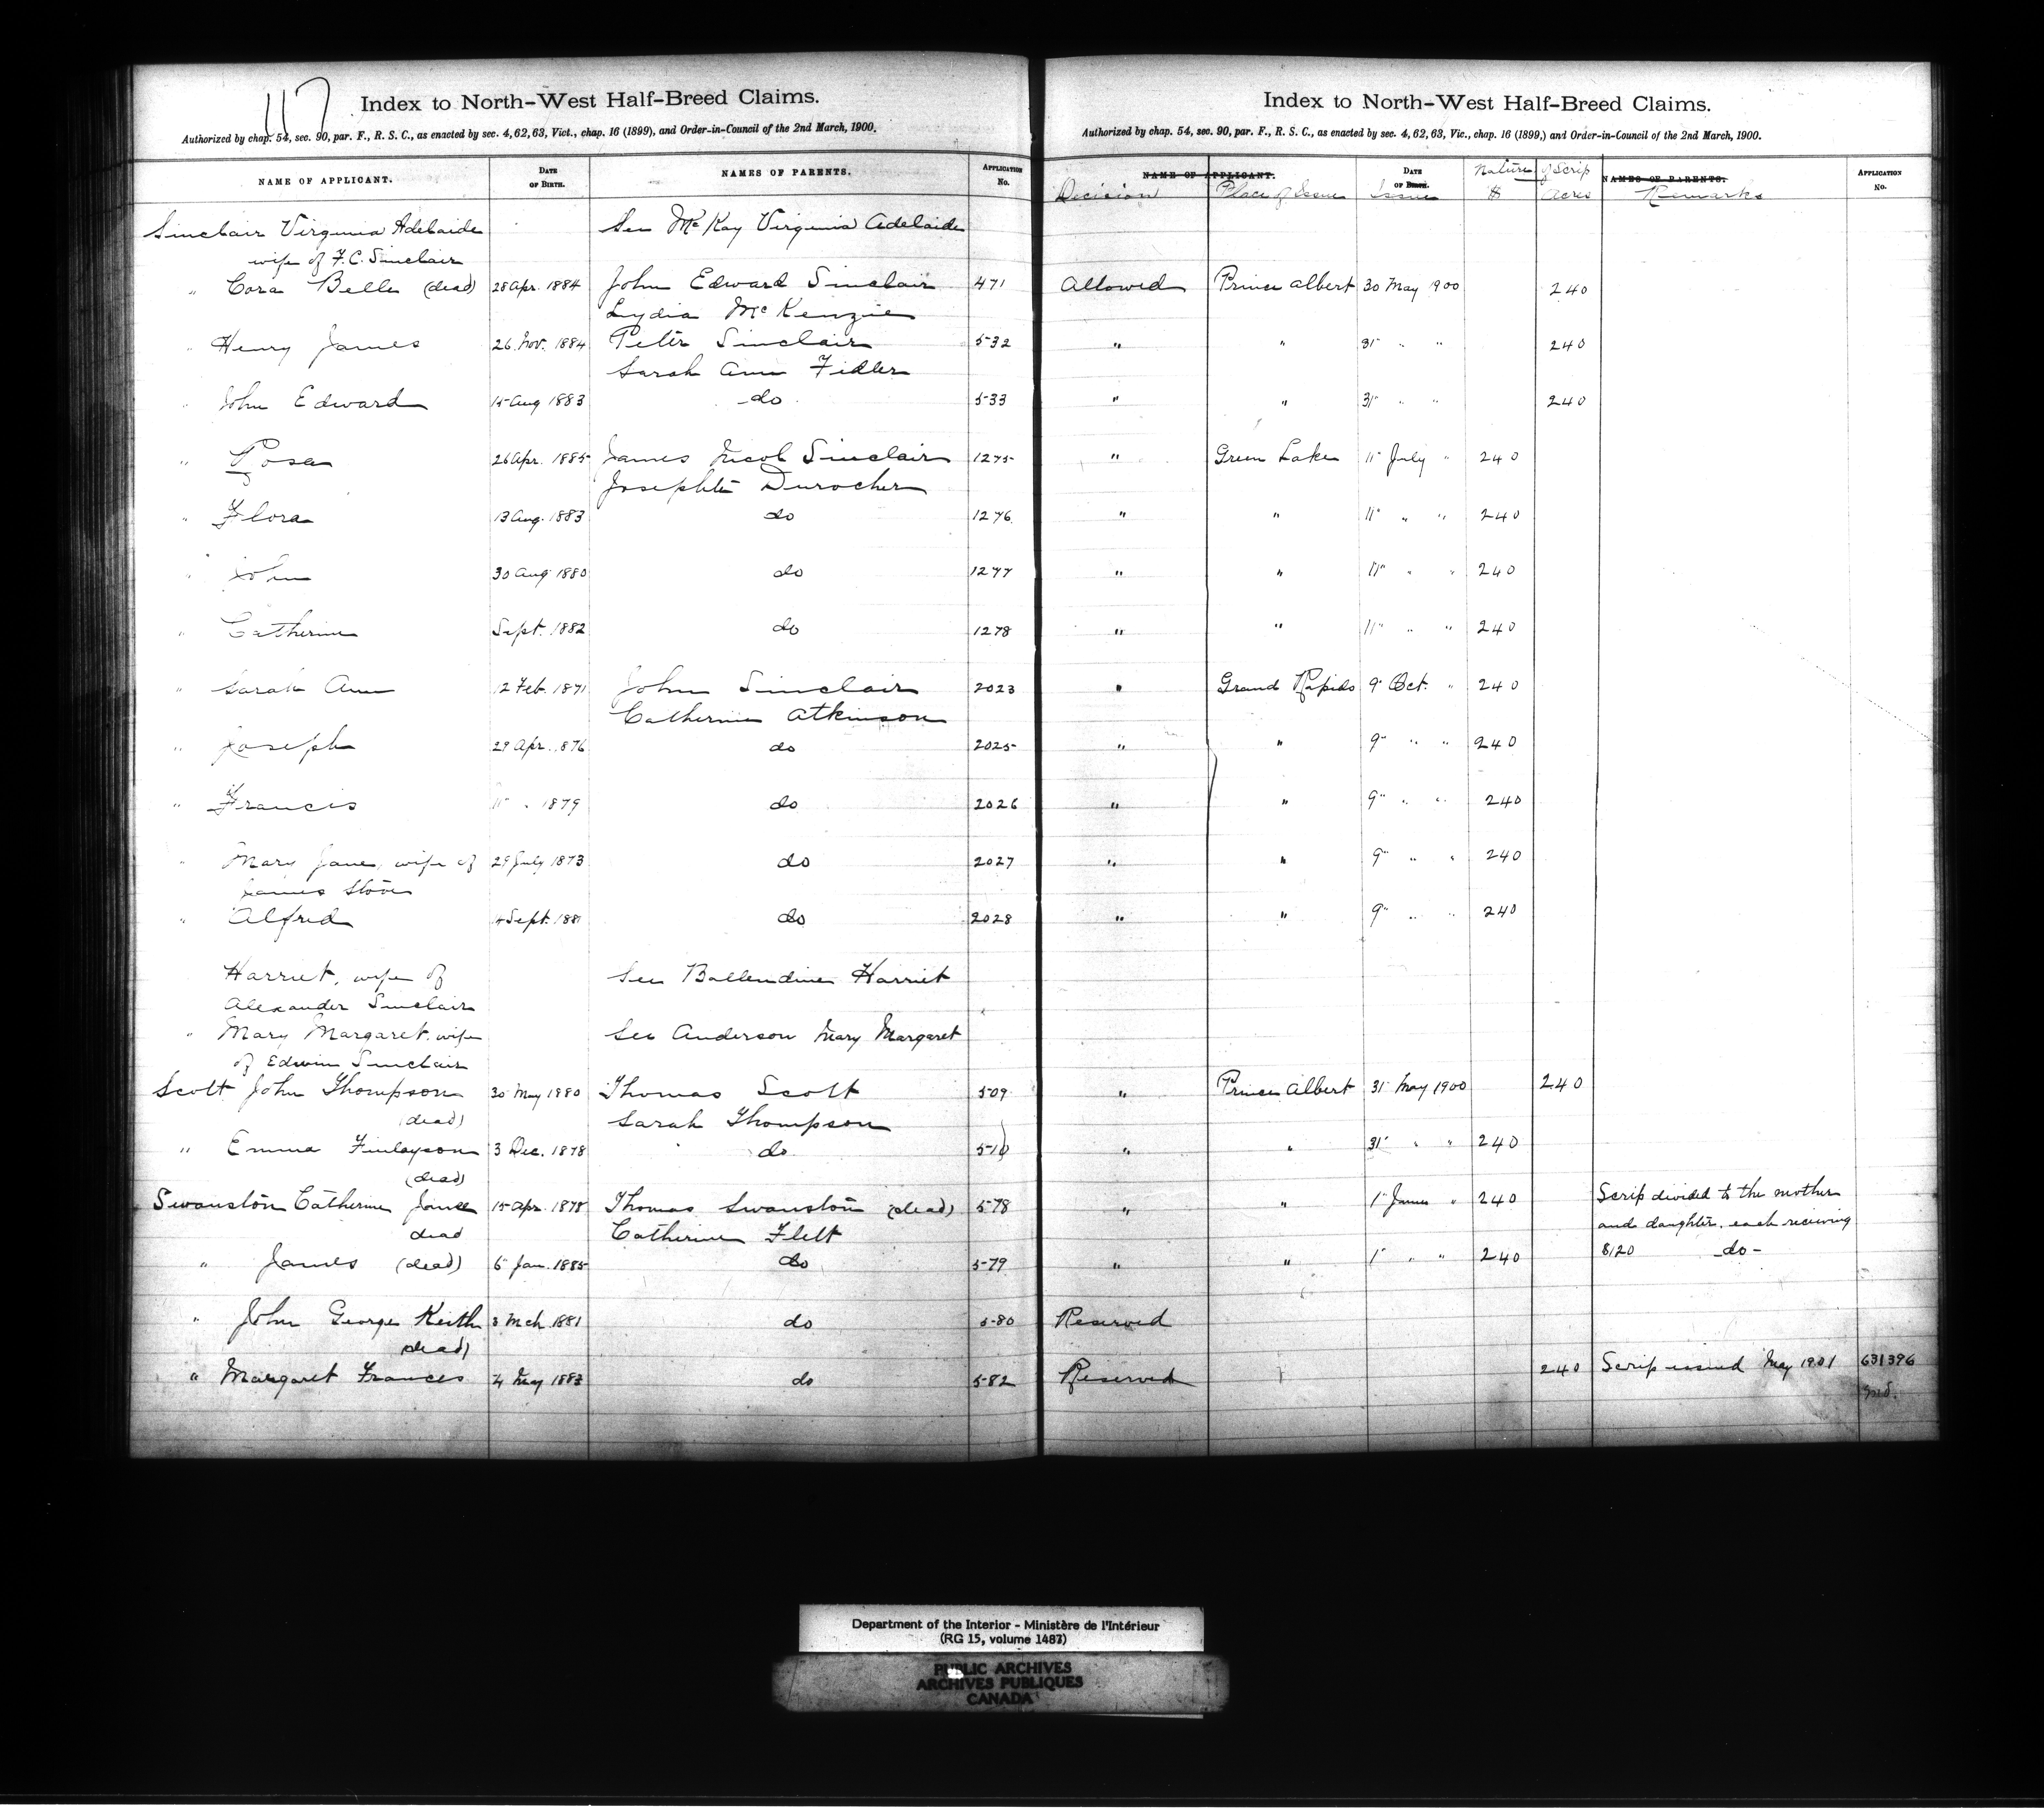 117
Index to North-West Half-Breed Claims.
Authorized by chap. 54, sec. 90, par. F., R. S. C., as enacted by sec. 4, 62, 63, Vict., chap. 16 (1899), and Order-in-Council of the 2nd March, 1900.
NAME OF APPLICANT. DATE OF BIRTH. NAMES OF PARENTS. APPLICATION No.
Sinclair Virginia Adelaide See McKay Virginia Adelaide
wife of F. C. Sinclair
" Cora Belle (dead) 28 Apr. 1884 John Edward Sinclair 471
Lydia McKenzie
" Henry James 26 Nov. 1884 Peter Sinclair 532
Sarah Ann Fidler
" John Edward 15 Aug 1883 do 533
" Rosa 26 Apr. 1885 James Nicol Sinclair 1275
Josephte Durocher
" Flora 13 Aug. 1883 do 1276
" John 30 Aug 1880 do 1277
" Catherine Sept. 1882 do 1278
" Sarah Ann 12 Feb. 1871 John Sinclair 2023
Catherine Atkinson
" Joseph 29 Apr. 1876 do 2025
" Francis 11 " 1879 do 2026
" Mary Jane, wife of 29 July 1873 do 2027
James
" Alfred 4 Sept. 1881 do 2028
Harriet, wife of See Ballendine Harriet
Alexander Sinclair
" Mary Margaret, wife See Anderson Mary Margaret
of Edwin Sinclair
Scott John Thompson 30 May 1880 Thomas Scott 509
(dead) Sarah Thompson
" Emma Finlayson 3 Dec. 1878 do 510
(dead)
Swanston Catherine 15 Apr. 1878 Thomas Swanston (dead) 578
dead Catherine Flett
" James (dead) 6 Jan. 1885 do 579
" John George Keith 3 Mch 1881 do 580
(dead)
" Margaret Frances 4 May 1883 do 582
Index to North-West Half-Breed Claims.
Authorized by chap. 54, sec. 90, par. F., R. S. C., as enacted by sec. 4, 62, 63, Vic., chap. 16 (1899,) and Order-in-Council of the 2nd March, 1900.
NAME OF APPLICANT. DATE OF BIRTH. Nature of Scrip NAMES OF PARENTS. APPLICATION No.
Decision Place of Issue Issue $ Acres Remarks
Allowed Prince Albert 30 May 1900 240
" " 31 " " 240
" " 31 " " 240
" Green Lake 11 July " 240
" " 11 " " 240
" " 11 " " 240
" " 11 " " 240
" Grand Rapids 9 Oct. " 240
" " 9 " " 240
" " 9 " " 240
" " 9 " " 240
" " 9 " " 240
" Prince Albert 31 May 1900 240
" " 31 " " 240
" " 1 " 240 Scrip divided to the mother
and daughter, each receiving
" " 1 " " 240 $120 do-
Reserved
Reserved 240 Scrip issued May 1901 631396
Department of the Interior - Ministère de l'Intérieur
(RG 15, volume 1487)
PUBLIC ARCHIVES
ARCHIVES PUBLIQUES
CANADA